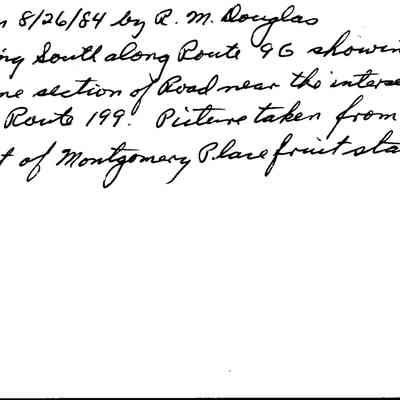 n 8/26/84 by R. M. Douglas
ng South along Route 9G showin
ne section of Road near the interse
Route 199. Picture taken from
t of Montgomery Place fruit sta